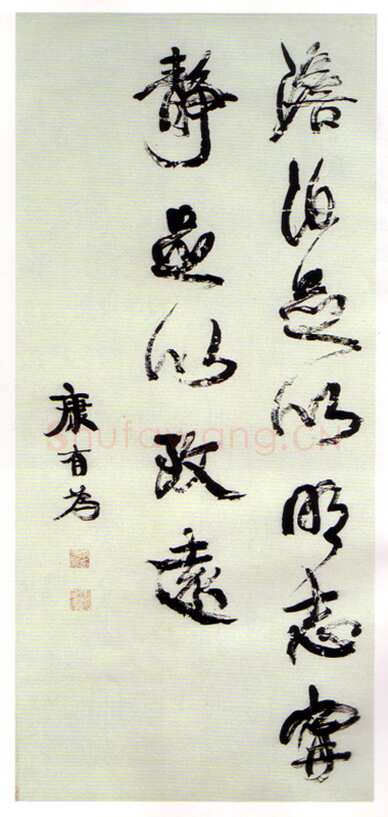 澹泊足以明志寧
靜足以致遠
康有為
Shufawang.CN